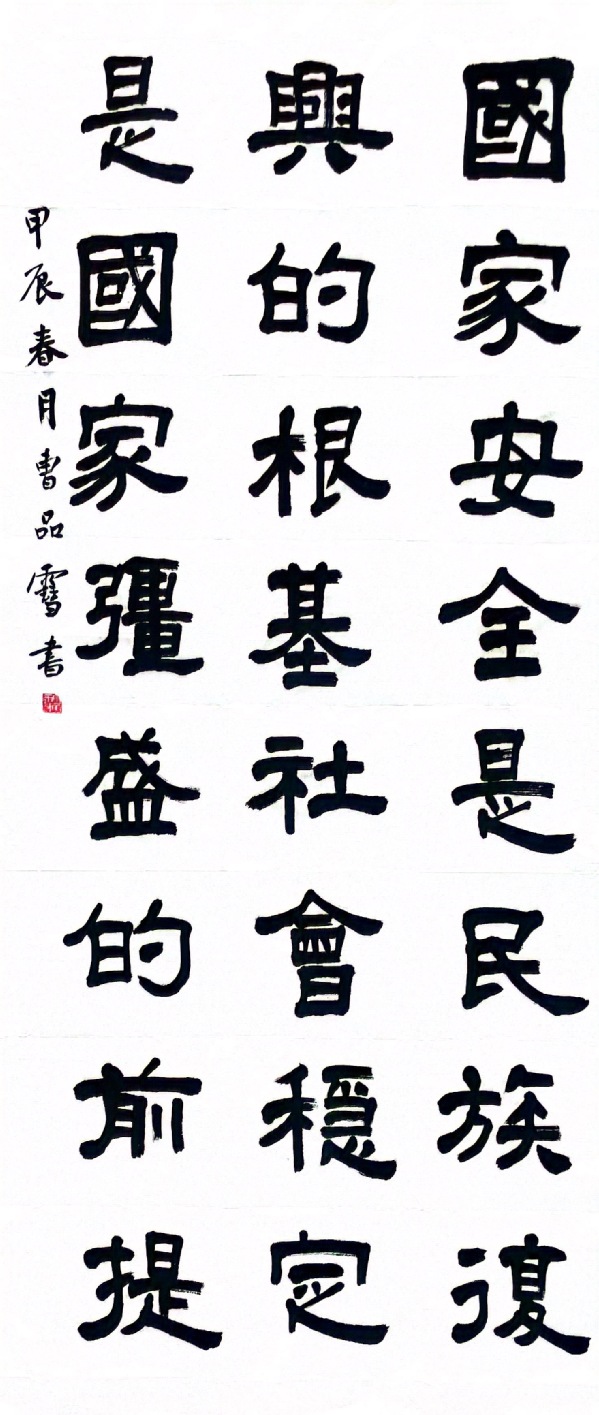 國家安全是民族復
興的根基社會穩定
是國家彊盛的前提
甲辰春月曹品雪書